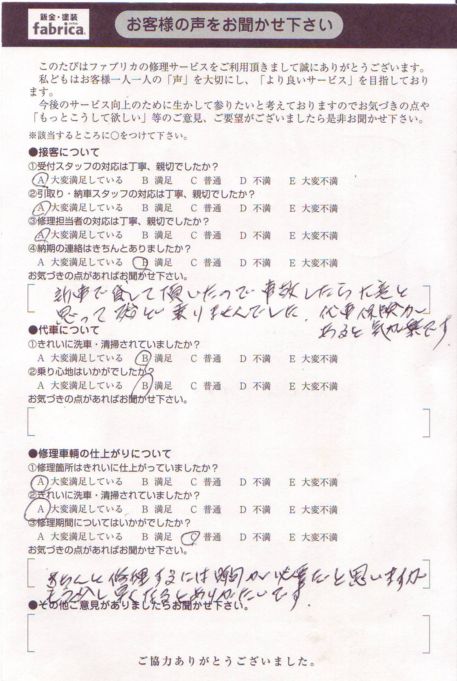 鈑金・塗装
fabrica.
お客様の声をお聞かせ下さい
このたびはファブリカの修理サービスをご利用頂きまして誠にありがとうございます。
私どもはお客様一人一人の「声」を大切にし、「より良いサービス」を目指しており
ます。
今後のサービス向上のために生かして参りたいと考えておりますのでお気づきの点や
「もっとこうして欲しい」等のご意見、ご要望がございましたら是非お聞かせ下さい。
※該当するところに○をつけて下さい。
●接客について
①受付スタッフの対応は丁寧、親切でしたか？
A 大変満足している B 満足 C 普通 D 不満 E 大変不満
②引取り・納車スタッフの対応は丁寧、親切でしたか？
A 大変満足している B 満足 C 普通 D 不満 E 大変不満
③修理担当者の対応は丁寧、親切でしたか？
A 大変満足している B 満足 C 普通 D 不満 E 大変不満
④納期の連絡はきちんとありましたか？
A 大変満足している B 満足 C 普通 D 不満 E 大変不満
お気づきの点があればお聞かせ下さい。
新車で貸して頂いたので事故したら大変と
思って殆ど乗りませんでした。代車保険が
あると気が楽です
●代車について
①きれいに洗車・清掃されていましたか？
A 大変満足している B 満足 C 普通 D 不満 E 大変不満
②乗り心地はいかがでしたか？
A 大変満足している B 満足 C 普通 D 不満 E 大変不満
お気づきの点があればお聞かせ下さい。
●修理車輌の仕上がりについて
①修理箇所はきれいに仕上がっていましたか？
A 大変満足している B 満足 C 普通 D 不満 E 大変不満
②きれいに洗車・清掃されていましたか？
A 大変満足している B 満足 C 普通 D 不満 E 大変不満
③修理期間についてはいかがでしたか？
A 大変満足している B 満足 C 普通 D 不満 E 大変不満
お気づきの点があればお聞かせ下さい。
きちんと修理するには時間が必要だと思いますが
もう少し早くなるとありがたいです。
●その他ご意見がありましたらお聞かせ下さい。
ご協力ありがとうございました。